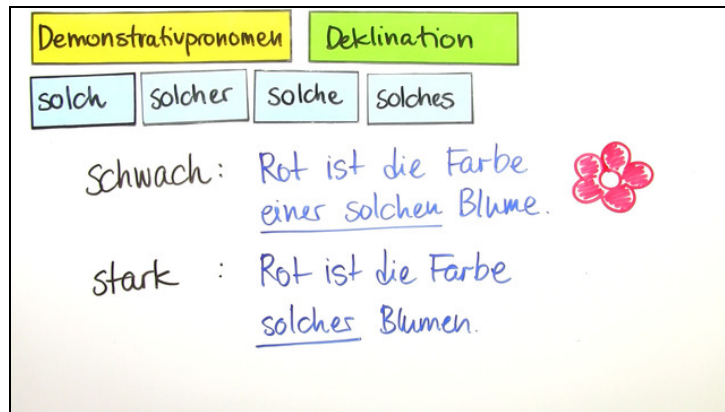 Demonstrativpronomen Deklination
solch solcher solche solches
schwach: Rot ist die Farbe
einer solchen Blume.
stark : Rot ist die Farbe
solcher Blumen.